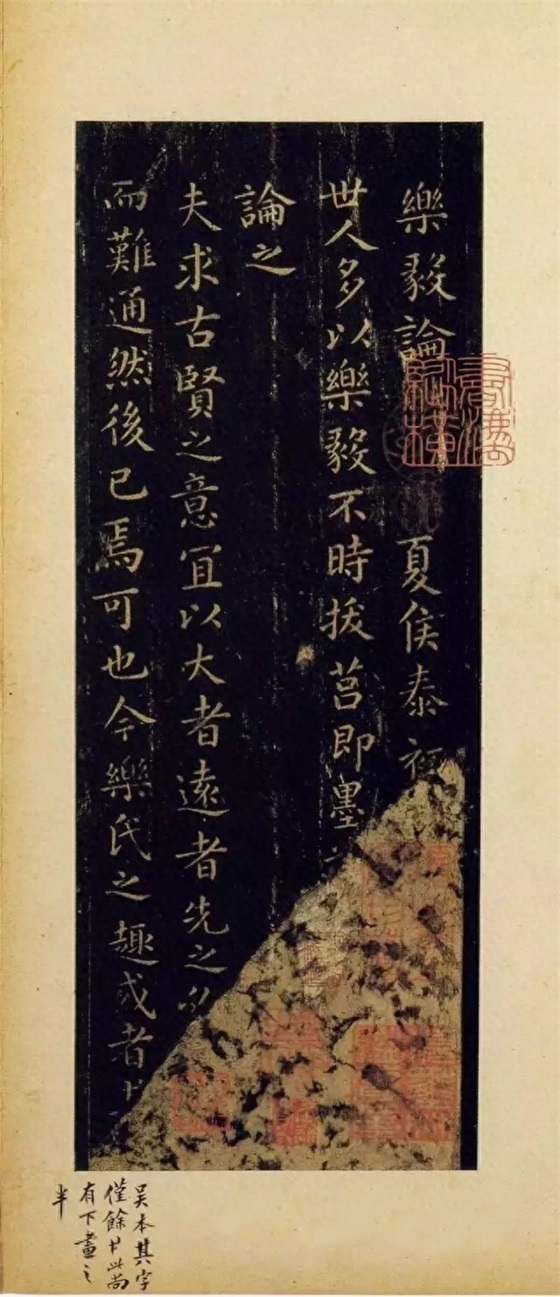 樂毅論 夏侯泰初
世人多以樂毅不時拔莒即墨
論之
夫求古賢之意宜以大者遠者先之
而難通然後已焉可也今樂氏之趣或者
吴本其字
僅餘廿此尚
有下畫之
半